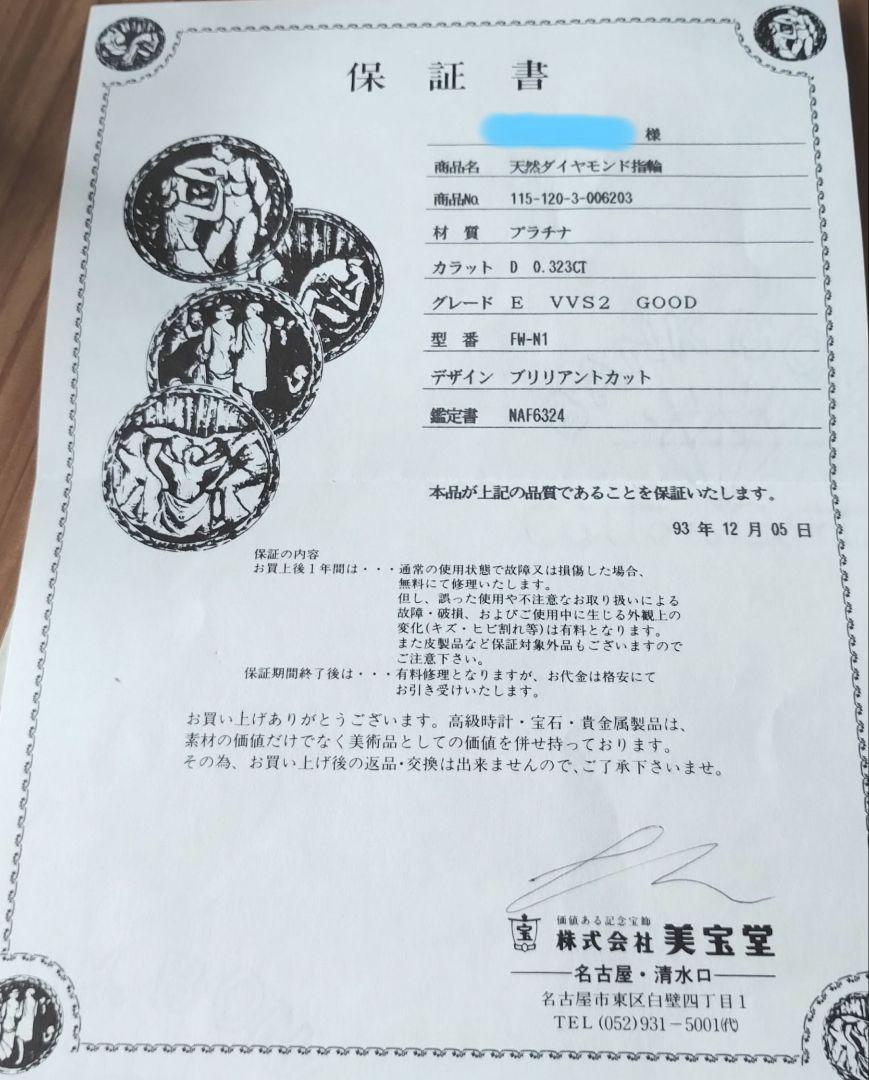 保証書
様
商品名 天然ダイヤモンド指輪
商品No. 115-120-3-006203
材質 プラチナ
カラット D 0.323CT
グレード E VVS2 GOOD
型番 FW-N1
デザイン ブリリアントカット
鑑定書 NAF6324
本品が上記の品質であることを保証いたします。
93年12月05日
保証の内容
お買上後1年間は・・・通常の使用状態で故障又は損傷した場合、
無料にて修理いたします。
但し、誤った使用や不注意なお取り扱いによる
故障・破損、およびご使用中に生じる外観上の
変化(キズ・ヒビ割れ等)は有料となります。
また皮製品など保証対象外品もございますので
ご注意下さい。
保証期間終了後は・・・有料修理となりますが、お代金は格安にて
お引き受けいたします。
お買い上げありがとうございます。高級時計・宝石・貴金属製品は、
素材の価値だけでなく美術品としての価値を併せ持っております。
その為、お買い上げ後の返品・交換は出来ませんので、ご了承下さいませ。
宝
価値ある記念宝飾
株式会社 美宝堂
名古屋・清水口
名古屋市東区白壁四丁目1
TEL(052)931-5001(代)